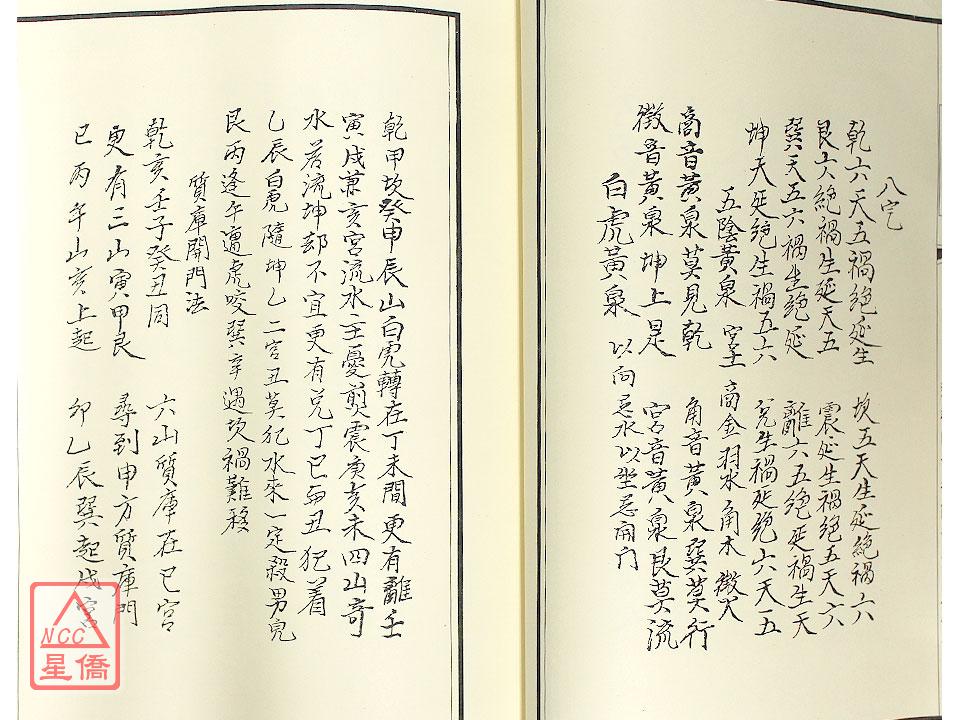 八宅
乾六天五禍絕延生 坎五天生延絕禍六
艮六絕禍生延天五 震延生禍絕五天六
巽天五六禍生絕延 離六五絕延禍生天
坤天延絕生禍五六 兌生禍延絕六天五
五陰黃泉 宮土 商金羽水角木 徵火
商音黃泉莫見乾 角音黃泉巽莫行
徵音黃泉坤上是 宮音黃泉艮莫流
白虎黃泉 以向忌水以坐忌開門
乾甲坎癸申辰山白虎轉在丁未間更有離壬
寅戌兼亥宮流水主憂煎震庚亥未四山奇
水若流坤却不宜更有兌丁巳兼丑犯着
乙辰白虎隨坤乙二宮丑莫犯水來一定殺男兒
艮丙逢午遭虎咬巽辛遇坎禍難移
質庫開門法
乾亥壬子癸丑同 六山質庫在巳宮
更有三山寅甲艮 尋到申方質庫門
巳丙午山亥上起 卯乙辰巽起戌宮
NCC
星僑